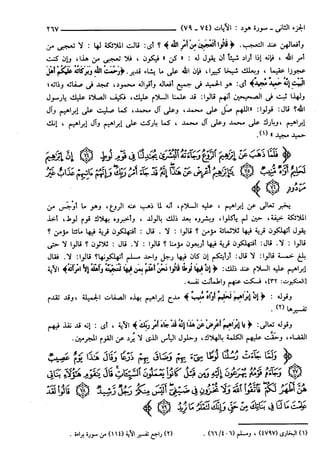 الجزء الثاني - سورة هود : الآيات (٧٤ - ٧٩)
٢٦٧
وأفعالهن عند التعجب. ﴿قَالُوا أَتَعْجَبِينَ مِنْ أَمْرِ اللَّهِ﴾ ؟ أي: قالت الملائكة لها : لا تعجبي من
أمر الله ، فإنه إذا أراد شيئاً أن يقول له : « كن » فيكون ، فلا تعجبي من هذا، وإن كنت
عجوزا عقيما ، وبعلك شيخا كبيرا ، فإن الله على ما يشاء قدير. ﴿رَحْمَتُ اللَّهِ وَبَرَكَاتُهُ عَلَيْكُمْ أَهْلَ
الْبَيْتِ إِنَّهُ حَمِيدٌ مَجِيدٌ﴾ أي: هو الحميد في جميع أفعاله وأقواله محمود، ممجد في صفاته وذاته؛
ولهذا ثبت في الصحيحين أنهم قالوا: قد علمنا السلام عليك، فكيف الصلاة عليك يارسول
الله؟ قال: قولوا: «اللهم صل على محمد، وعلى آل محمد، كما صليت على إبراهيم وآل
إبراهيم ، وبارك على محمد وعلى آل محمد ، كما باركت على إبراهيم وآل إبراهيم ، إنك
حميد مجيد » (١).
فَلَمَّا ذَهَبَ عَنْ إِبْرَاهِيمَ الرَّوْعُ وَجَاءَتْهُ الْبُشْرَى يُجَادِلُنَا فِي قَوْمِ لُوطٍ ۝ إِنَّ إِبْرَاهِيمَ
لَحَلِيمٌ أَوَّاهٌ مُنِيبٌ ۝ يَا إِبْرَاهِيمُ أَعْرِضْ عَنْ هَذَا إِنَّهُ قَدْ جَاءَ أَمْرُ رَبِّكَ وَإِنَّهُمْ آتِيهِمْ عَذَابٌ غَيْرُ
مَرْدُودٍ ۝
يخبر تعالى عن إبراهيم ، عليه السلام، أنه لما ذهب عنه الروع، وهو ما أوجس من
الملائكة خيفة، حين لم يأكلوا، وبشروه بعد ذلك بالولد ، وأخبروه بهلاك قوم لوط، أخذ
يقول أتهلكون قرية فيها ثلاثمائة مؤمن ؟ قالوا : لا . قال : أفتهلكون قرية فيها مائتا مؤمن ؟
قالوا: لا. قال: أفتهلكون قرية فيها أربعون مؤمنا ؟ قالوا: لا. قال : ثلاثون ؟ قالوا لا حتى
بلغ خمسة قالوا: لا. قال: أرأيتكم إن كان فيها رجل واحد مسلم أتهلكونها؟ قالوا: لا. فقال
إبراهيم عليه السلام عند ذلك: ﴿إِنَّ فِيهَا لُوطًا قَالُوا نَحْنُ أَعْلَمُ بِمَنْ فِيهَا لَنُنَجِّيَنَّهُ وَأَهْلَهُ إِلَّا امْرَأَتَهُ﴾ الآية
[العنكبوت: ٣٢]، فسكت عنهم واطمأنت نفسه.
وقوله : ﴿إِنَّ إِبْرَاهِيمَ لَحَلِيمٌ أَوَّاهٌ مُنِيبٌ﴾ مدح إبراهيم بهذه الصفات الجميلة ، وقد تقدم
تفسيرها (٢).
وقوله تعالى: ﴿يَا إِبْرَاهِيمُ أَعْرِضْ عَنْ هَذَا إِنَّهُ قَدْ جَاءَ أَمْرُ رَبِّكَ﴾ الآية ، أي : إنه قد نفذ فيهم
القضاء، وحقت عليهم الكلمة بالهلاك، وحلول البأس الذي لا يُرد عن القوم المجرمين.
وَلَمَّا جَاءَتْ رُسُلُنَا لُوطًا سِيءَ بِهِمْ وَضَاقَ بِهِمْ ذَرْعًا وَقَالَ هَذَا يَوْمٌ عَصِيبٌ
۝ وَجَاءَهُ قَوْمُهُ يُهْرَعُونَ إِلَيْهِ وَمِنْ قَبْلُ كَانُوا يَعْمَلُونَ السَّيِّئَاتِ قَالَ يَا قَوْمِ هَؤُلَاءِ بَنَاتِي
هُنَّ أَطْهَرُ لَكُمْ فَاتَّقُوا اللَّهَ وَلَا تُخْزُونِ فِي ضَيْفِي أَلَيْسَ مِنْكُمْ رَجُلٌ رَشِيدٌ ۝ قَالُوا لَقَدْ
عَلِمْتَ مَا لَنَا فِي بَنَاتِكَ مِنْ حَقٍّ وَإِنَّكَ لَتَعْلَمُ مَا نُرِيدُ ۝
(١) البخاري (٤٧٩٧) ، ومسلم (٤٠٦/ ٦٦) .
(٢) راجع تفسير الآية (١١٤) من سورة براءة .